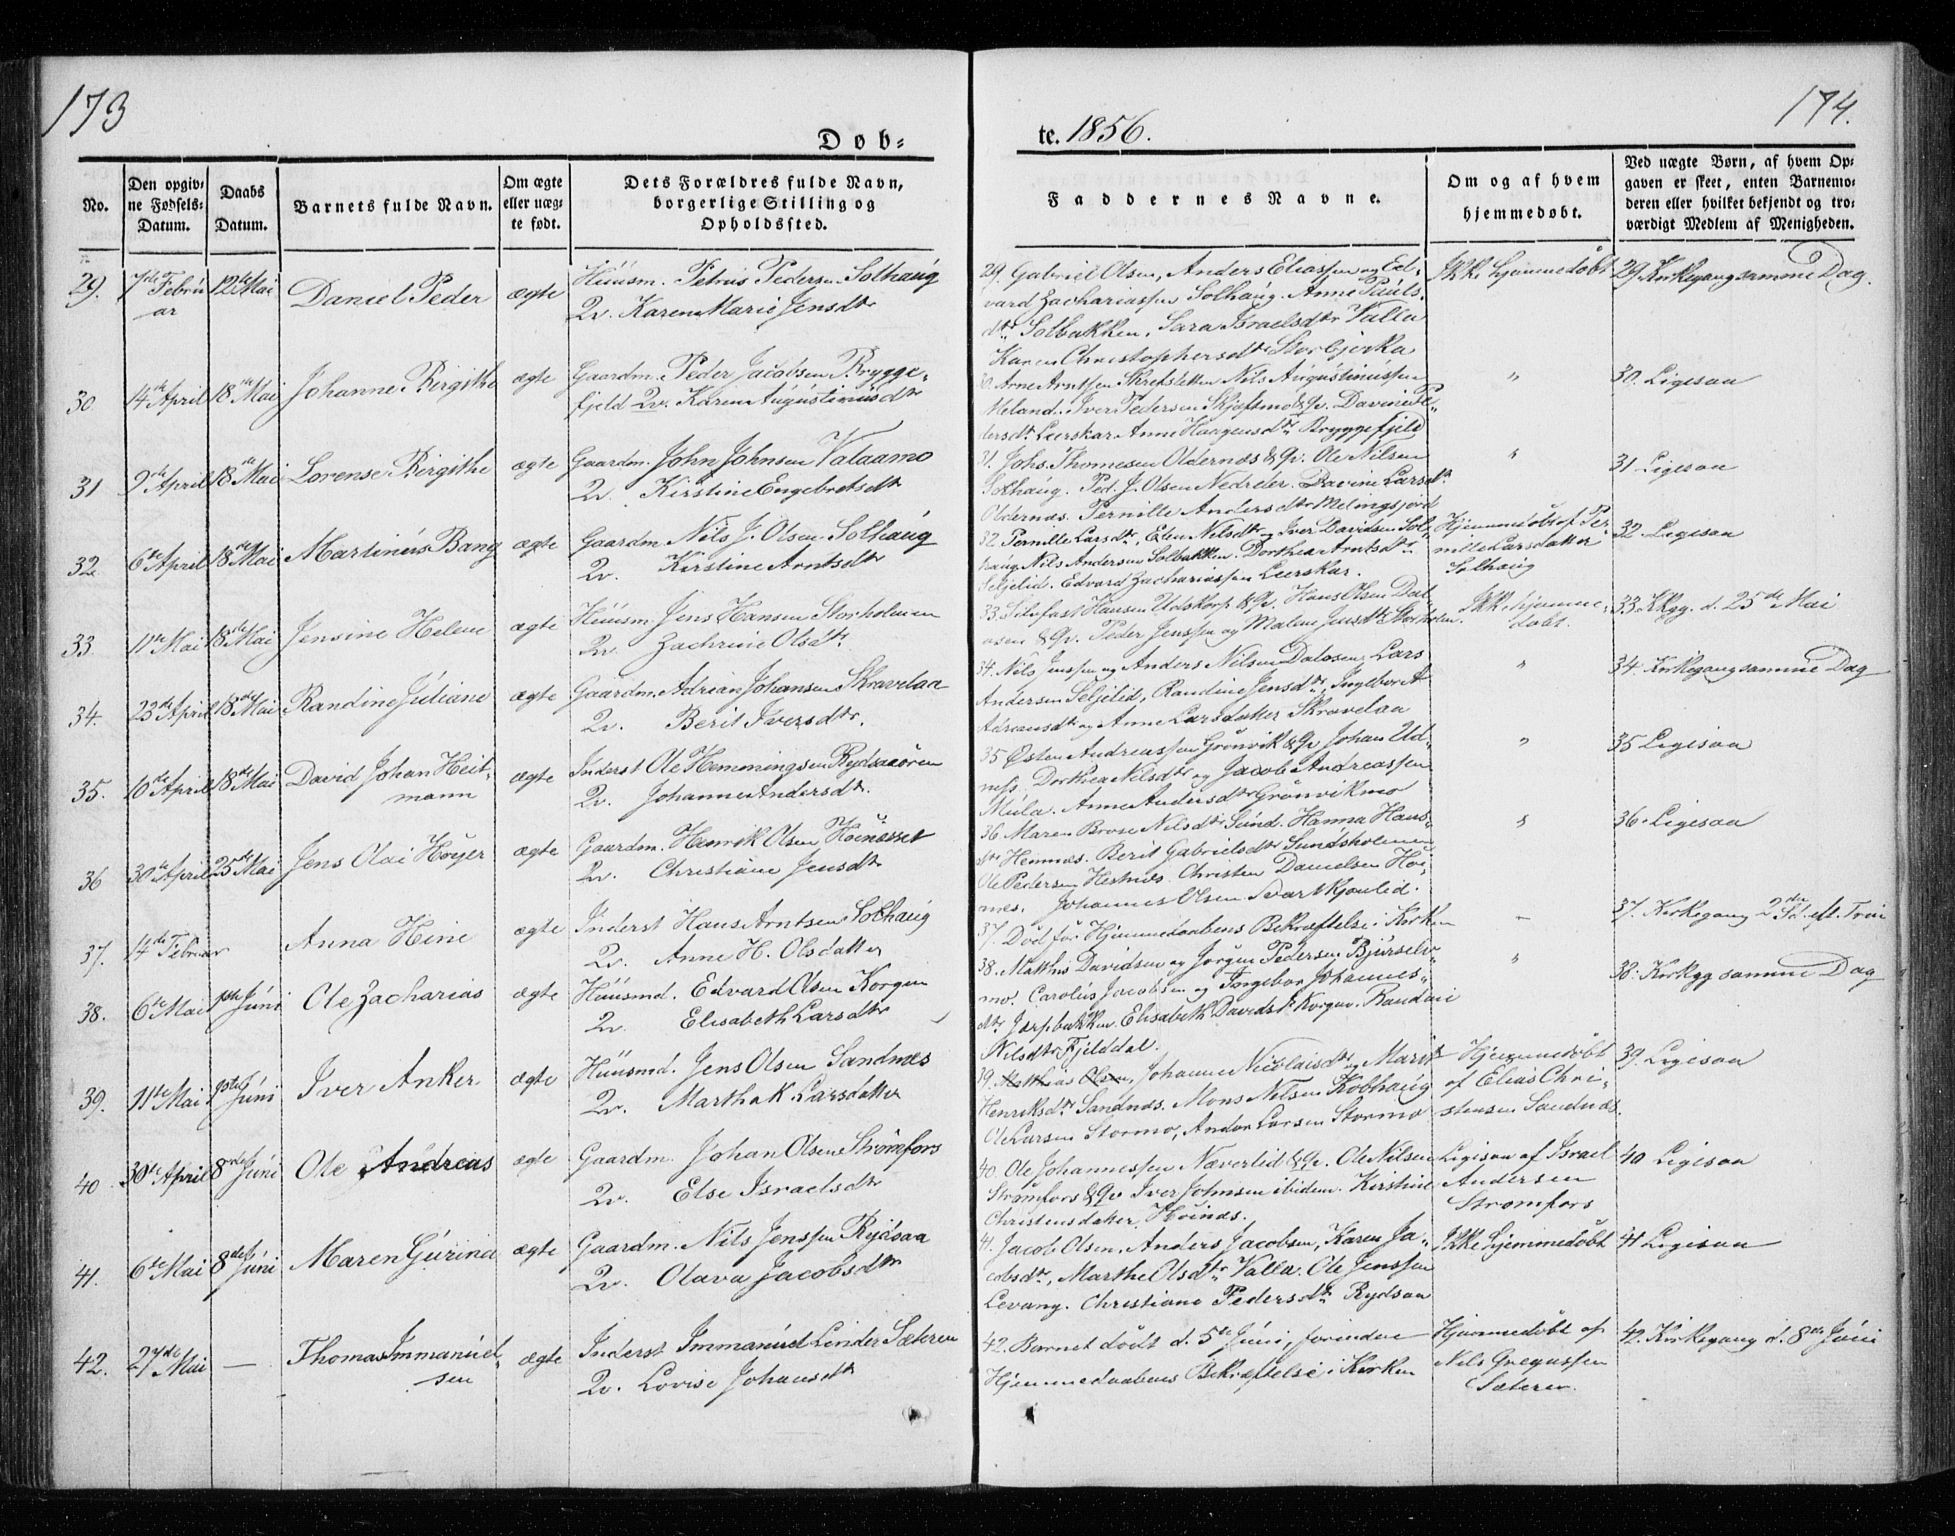 173
174.
Døb-
te. 1856.
No.
Den opgiv-
ne Fødsels-
Datum.
Daabs
Datum.
Barnets fulde Navn.
Om ægte
eller uæg-
te født.
Dets Forældres fulde Navn,
borgerlige Stilling og
Opholdssted.
Faddernes Navne.
Om og af hvem
hjemmedøbt.
Ved uægte Børn, af hvem Op-
gaven er skeet, enten Barnemo-
deren eller hvilket bekjendt og tro-
værdigt Medlem af Menigheden.
29. 7de Febru
ar
12te Mai
Daniel Peder
ægte
Huusm. Petrus Pedersen Solhaug
Qv. Karen Marie Jensdtr
29. Gabriel Olsen, Anders Eliassen og Ed-
vard Zachariassen Solhaug. Anne Pauls-
dtr Solbakken, Sara Israelsdtr Valla
Karen Christophersdtr Storbjerka
Ikke hjemmedøbt
29. Kirkegang samme Dag.
30. 14de April 18de Mai
Johanne Birgithe
ægte
Gaardm. Peder Jacobsen Brygge-
fjeld Qv. Karen Augustinusdtr
30. Arne Arntsen Nils Augustinussen
Meland. Iver Pedersen Skjæftmo & Qv. Davine Pe-
dersdtr Leerskar Anne Haagensdtr Bryggefjeld
"
30. Ligesaa
31 9de April 18de Mai
Lorense Birgithe
ægte
Gaardm. John Johnsen Valaamo
Qv. Kirstine Engebretsdtr
31. Johs. Thomesen Oldernæs & Qv. Ole Nilsen
Solhaug. Ped. J. Olsen Nedreler. Davine Larsdtr
Oldernæs. Pernille Andersdtr Melingsjord
"
31 Ligesaa
32. 6te April 18de Mai
Martinus Bang
ægte
Gaardm. Nils J. Olsen Solhaug
Qv. Kirstine Arntsdtr
32. Pernille Larsdtr, Elen Nilsdtr og Iver Davidsen Sol-
haug Nils Andersen Solbakken. Dorthea Arntsdtr
Seljelid. Edvard Zachariassen Leerskar.
Hjemmedøbt af Per
nille Larsdatter
Solhaug
32 Ligesaa
33 11te Mai 18de Mai
Jensine Helene
ægte
Huusm Jens Hansen Storholmen
Qv. Zachrine Olsdtr.
33. Hansen Udskorp & Qv. Hans Olsen Dal-
osen & Qv. Peder Jenssen og Malene Jensdtr Storholm.
Ikke hjemme-
døbt.
33. Kkg. d. 25de Mai
34. 23de April 18de Mai
Randine Juliane
ægte
Gaardm. Adrian Johansen Skravelaa
Qv. Berit Iversdtr.
34. Nils Jenssen og Anders Nilsen Dalosen, Lars
Andersen Seljelid, Randine Jensdtr, Ingebor A
Adriansdtr og Anne Larsdatter Skravelaa
"
34. Kirkegang samme Dag
35. 10de April 18de Mai
David Johan Heit-
mann
ægte
Inderst Ole Hemmingsen Rydsaaören
Qv. Johanne Andersdtr.
35 Østen Andreassen Grønvik & Qv Johan Ud-
næss. Dorthea Nilsdtr og Jacob Andreassen
Mula. Anne Andersdtr Grønvikmo
"
35 Ligesaa
36 30de April 25de Mai
Jens Olai Höyer
ægte
Gaardm. Henrik Olsen Höinæsset
Qv. Christiane Jensdtr
36 Maren Brose Nilsdtr Sund. Hanna Hans-
dtr Hemnæs. Berit Gabrielsdtr Sundsholmen
Ole Pedersen Hestnæs. Christen Danielsen Høi-
næs. Johannes Olsen Svartkjønlid.
"
36. Ligesaa
37. 14de Februar
Anna Hine
ægte
Inderst Hans Arntsen Solhaug
Qv. Anne H. Olsdatter
37. Död för Hjemmedaabens Bekræftelse i Kirken
-
37. Kirkegang 2den Sd. eft. Trin
38. 6te Mai 1ste Júni
Ole Zacharias
ægte
Huusmd. Edvard Olsen Korgen
Qv. Elisabeth Larsdtr
38. Matthis Davidsen og Jørgen Pedersen Bjurselv-
mo. Carolus Jacobsen og Ingebor Johannes-
dtr Jørpbakken. Elisabeth Davidsd. Korgen. Randini
Nilsdtr Fjelddal.
"
38. Kirkeg samme Dag
39. 11te Mai 1ste Júni
Iver Anker
ægte
Huusmd. Jens Olsen Sandnæs
Qv. Martha K. Larsdatter
39. Matthias Olsen, Johanne Nicolaisdtr og Marit
Henriksdtr Sandnæs. Mons Nilsen Kobhaug
Ole Larsen Stormo, Andor Larsen Stormo
Hjemmedøbt
af Elias Chri-
stensen Sandnæs.
39. Ligesaa
40. 30te April 8de Júni
Ole Andreas
ægte
Gaardm. Johan Olsen Strömfors
Qv. Else Israelsdtr
40 Ole Johannessen Næverlid & Qv. Ole Nilsen
Strømfors & Qv Iver Johnsen ibidem. Kirstine
Christensdatter Høinæs.
Ligesaa af Israel
Andersen
Strømfors
40 Ligesaa
41. 6te Mai 8de Júni
Maren Gurina
ægte
Gaardm. Nils Jenssen Rydsaa
Qv. Olava Jacobsdtr
41. Jacob Olsen, Anders Jacobsen, Karen Ja-
cobsdtr, Marthe Olsdtr Valla. Ole Jenssen
Levang. Christiane Pedersdtr Rydsaa
Ikke hjemmedøbt
41 Ligesaa
42. 27de Mai —
Thomas Immanuel-
sen
ægte
Inderst Immanuel Linder Sæteren
Qv. Lovise Johansdtr
42. Barnet dödt d. 5te Júni, forinden
Hjemmedaabens Bekræftelse i Kirken
Hjemmedøbt af
Nils Gregussen
Sæteren.
42. Kirkegang d. 8de Júni